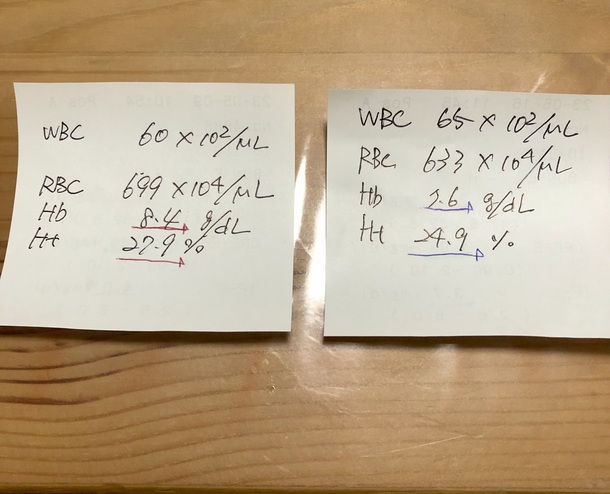 WBC 60 × 10²/μL
RBC 699 × 10⁴/μL
Hb 8.4 g/dL
Ht 27.9 %
WBC 65 × 10²/μL
RBC 633 × 10⁴/μL
Hb g/dL
Ht 24.9 %